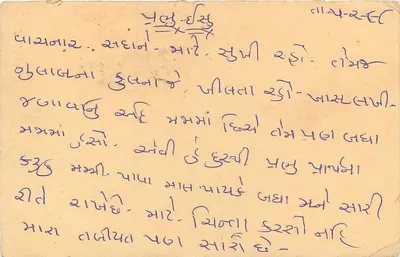 પ્રભુ-ઈસુ
તા ૫-૨-૮૬
વાચનાર. સદાને- માટે. સુખી રહો- તેમજ
ગુલાબના ફુલની જે ખીલતા રહો- ખાસ લખી-
જણાવાનું અહિ મઝામાં છિએ તેમ પણ બધા
મઝમાં હશો- એવી હું દુરથી પ્રભુ પ્રાર્થના
કરૂછુ મમ્મી- પાપા માસ પાયકે બધા મને સારી
રીતે રાખેછે- માટે- ચિન્તા કરશો નહિ
મારા તબીયત પણ સારી છે-